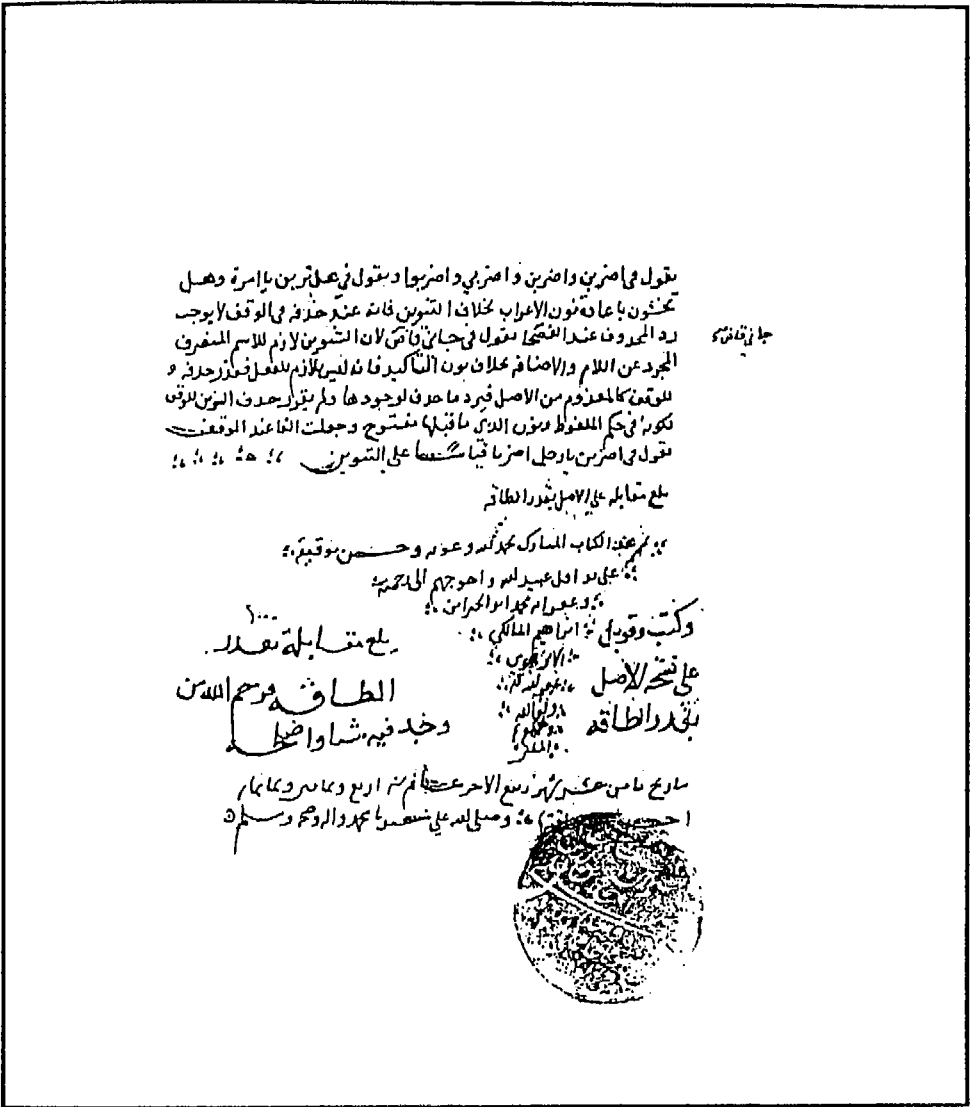 يقول في اضربن واضربن واضربي واضربوا ويقول في هل تضربن يا امرة وهل
باعادة نون الاعراب بخلاف التنوين فانه عند حذفه في الوقف لا يوجب
رد المحذوف عند الفصحا يقول في جاني قاض لان التنوين لازم للاسم المنصرف
جاني قاض
المجرد عن اللام والاضافه بخلاف نون التاكيد فانه ليس بلازم للفعل حذفه
للوقف كالمعدوم من الاصل فيرد ما حذف لوجودها ولم يقدر حذف التنوين للوقف
لكونه في حكم الملفوظ ونون الذي ما قبلها مفتوح وجعلت الفا عند الوقف
تقول في اضربن يا رجل اضربا قياسا على التنوين
بلغ مقابله على الاصل بقدر الطاقه
تم هذا الكتاب المبارك بحمد الله وعونه وحسن توفيقه
على يد اقل عبيد الله واحوجهم الى رحمته
وعفوه محمد ابو الخير ابن
ابراهيم المالكي
غفر الله له
ولوالديه
وكتب وقوبل
على نسخه الاصل
بقدر الطاقه
بلغ مقابلة بقدر
الطاقه فرحم الله من
وجد فيه شيا واصلحه
بتاريخ ثامن عشر شهر ربيع الاخر عام اربع وثمانين وثمانمايه
وصلى الله على سيدنا محمد واله وصحبه وسلم